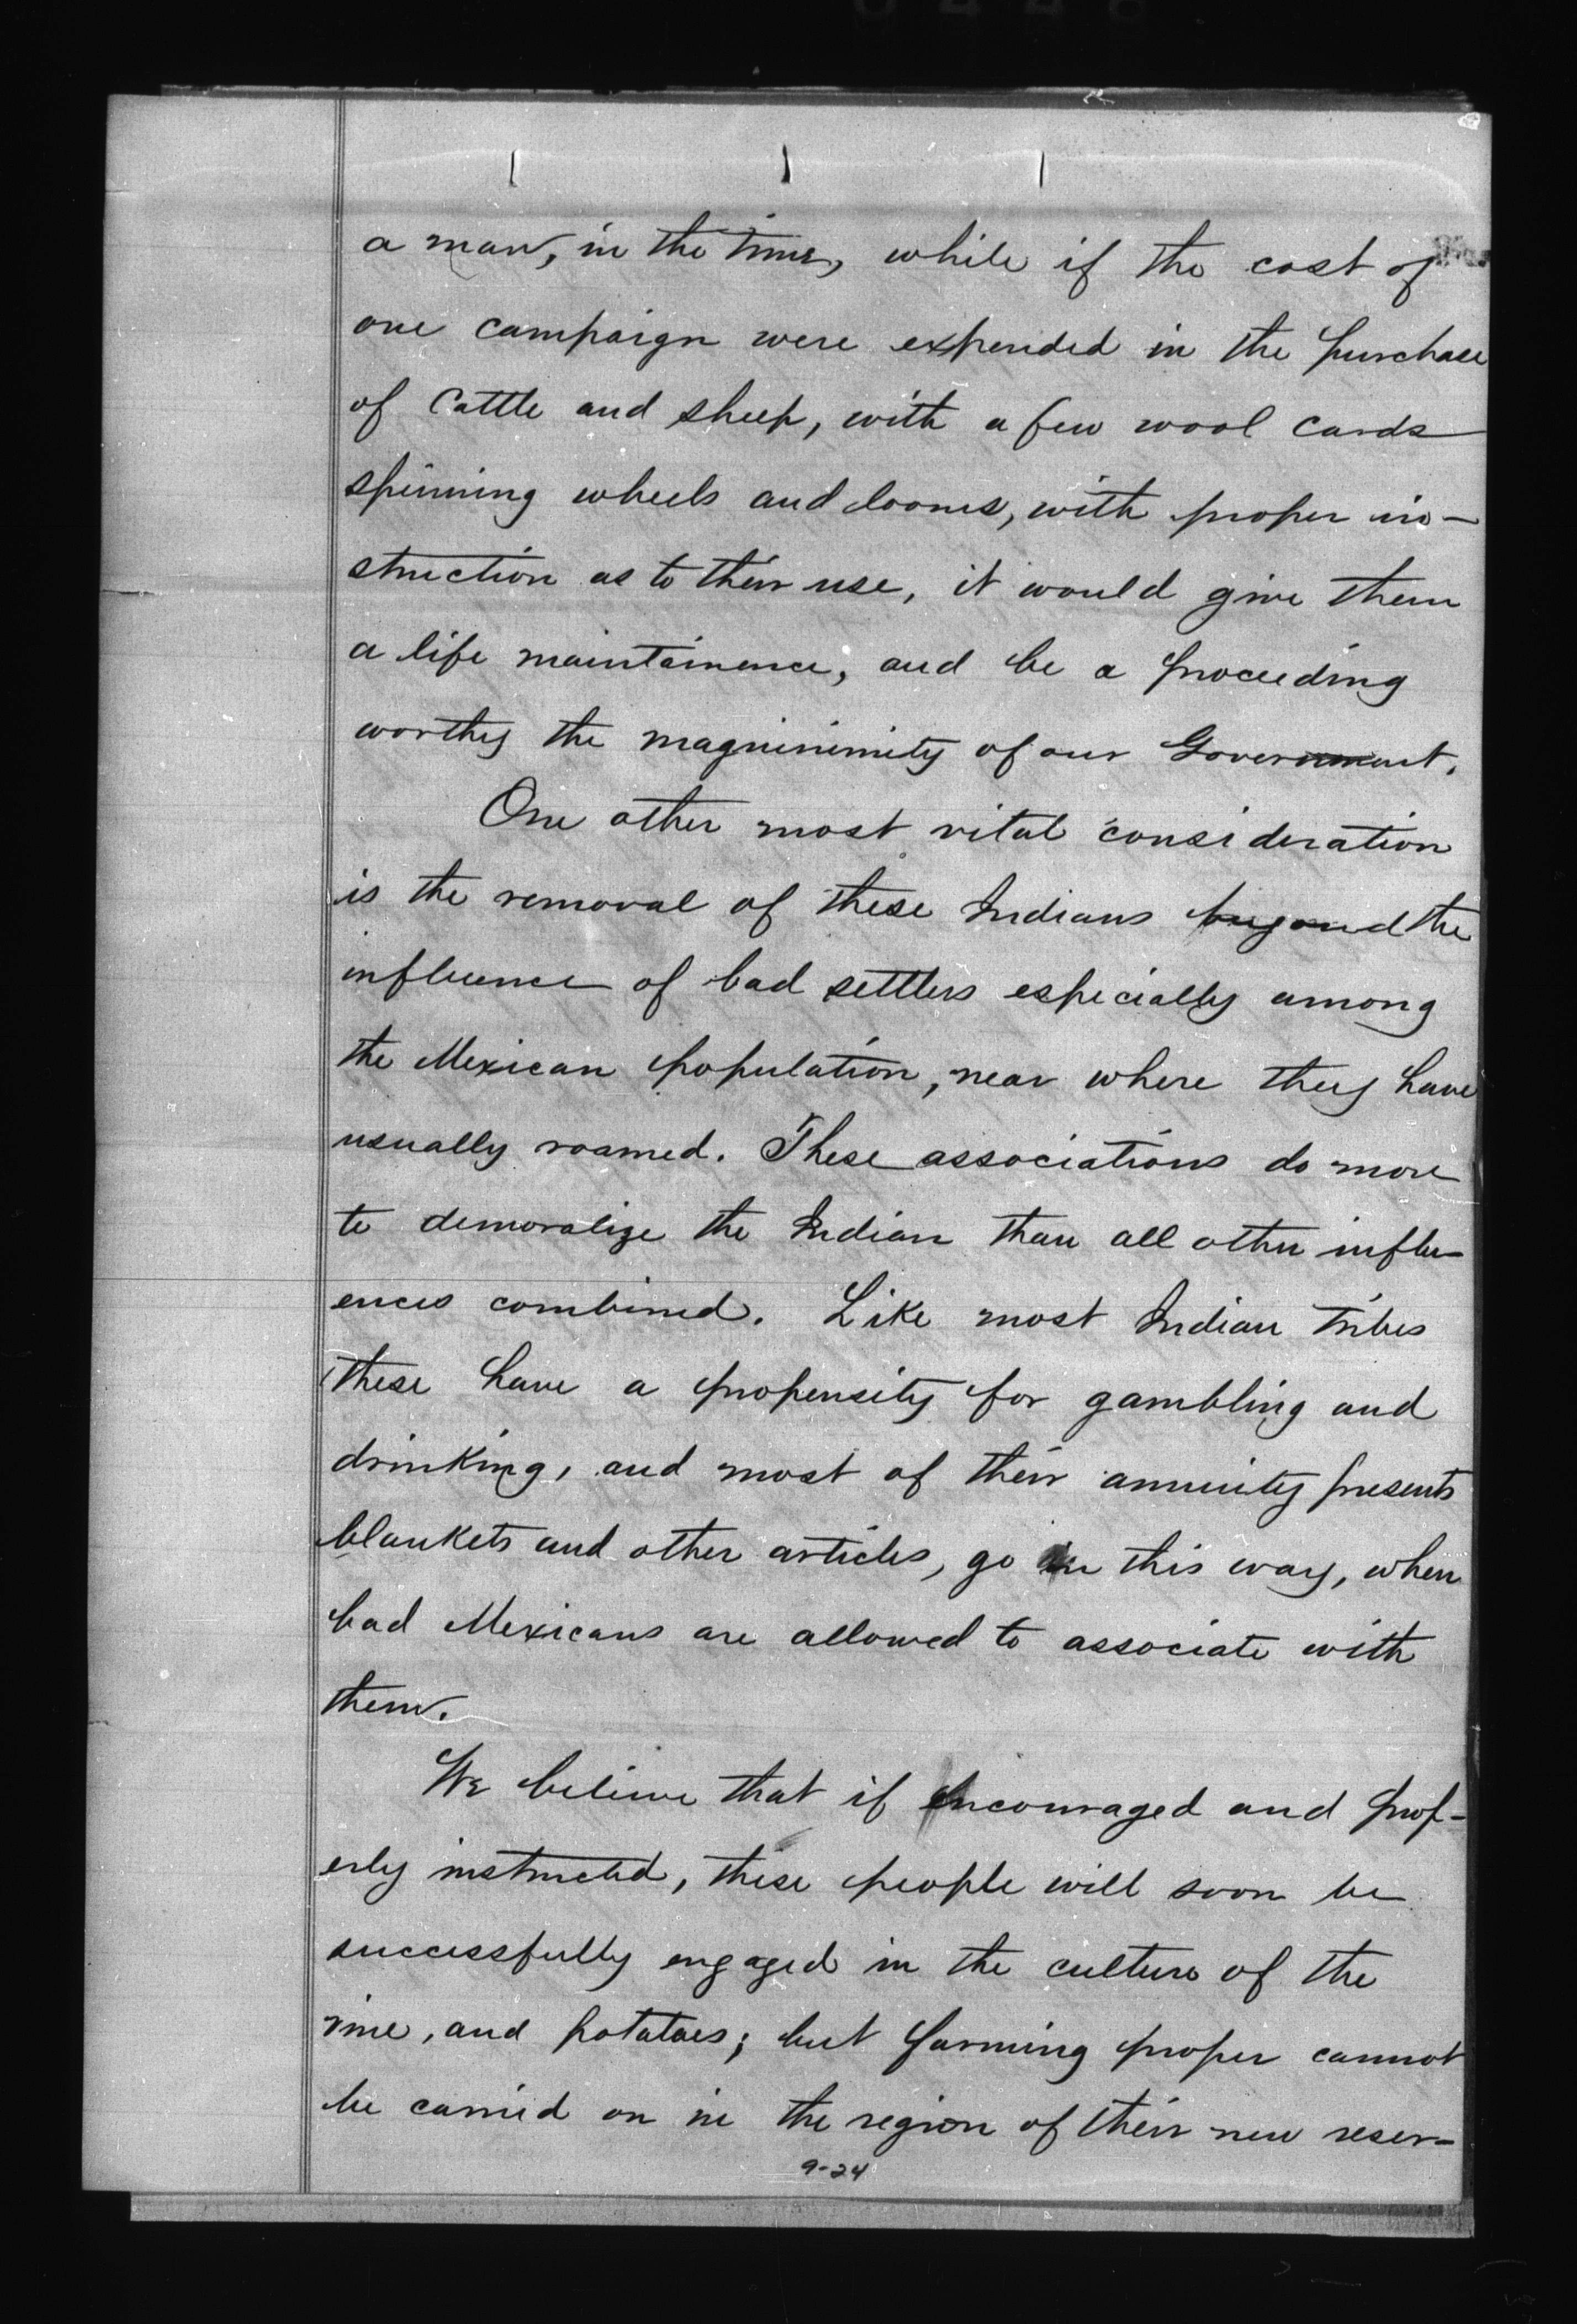 a man, in the time, while if the cost of
one campaign were expended in the purchase
of Cattle and sheep, with a few wool cards
spinning wheels and looms, with proper in-
struction as to their use, it would give them
a life maintainence, and be a proceeding
worthy the magninimity of our Government.
One other most vital consideration
is the removal of these Indians beyond the
influence of bad settlers especially among
the Mexican population, near where they have
usually roamed. These associations do more
to demoralize the Indian than all other influ-
ences combined. Like most Indian tribes
these have a propensity for gambling and
drinking, and most of their annuity presents
blankets and other articles, go in this way, when
bad Mexicans are allowed to associate with
them.
We believe that if encouraged and prop-
erly instructed, these people will soon be
successfully engaged in the culture of the
vine, and potatoes; but farming proper cannot
be carried on in the region of their new reser-
9-24